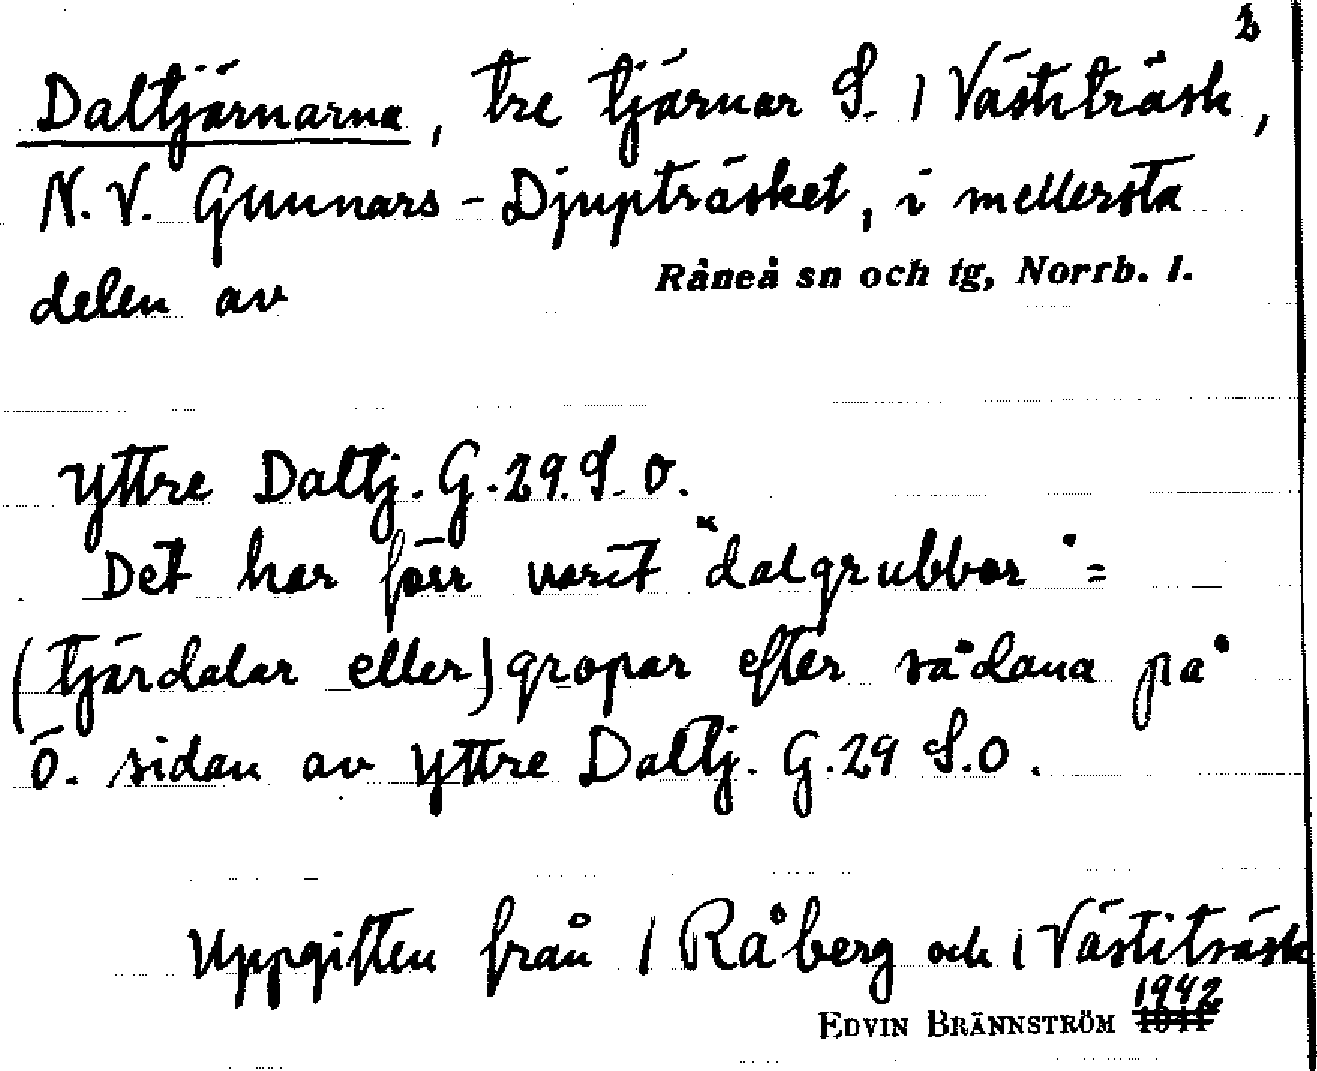 2
Daltjärnarna, tre tjärnar S. / Västiträsk,
N.V. Gunnars-Djupträsket, i mellersta
delen av Råneå sn och tg, Norrb. l.
Yttre Daltj. G.29.S.O.
Det har förr varit "dalgrubbor" =
(tjärdalar eller) gropar efter sådana på
Ö. sidan av Yttre Daltj. G.29 S.O.
Uppgiften från / Råberg och / Västiträsk
EDVIN BRÄNNSTRÖM 1942